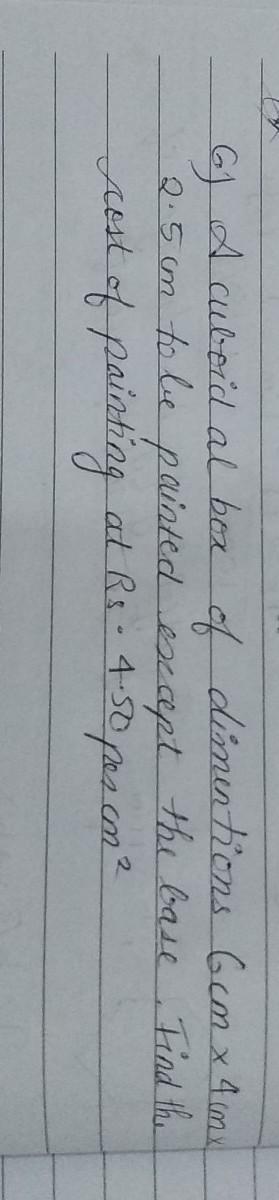 6) A cuboid al box of dimentions 6cm x 4cm x
2.5cm to be painted except the base. Find the
cost of painting at Rs. 4.50 per cm²